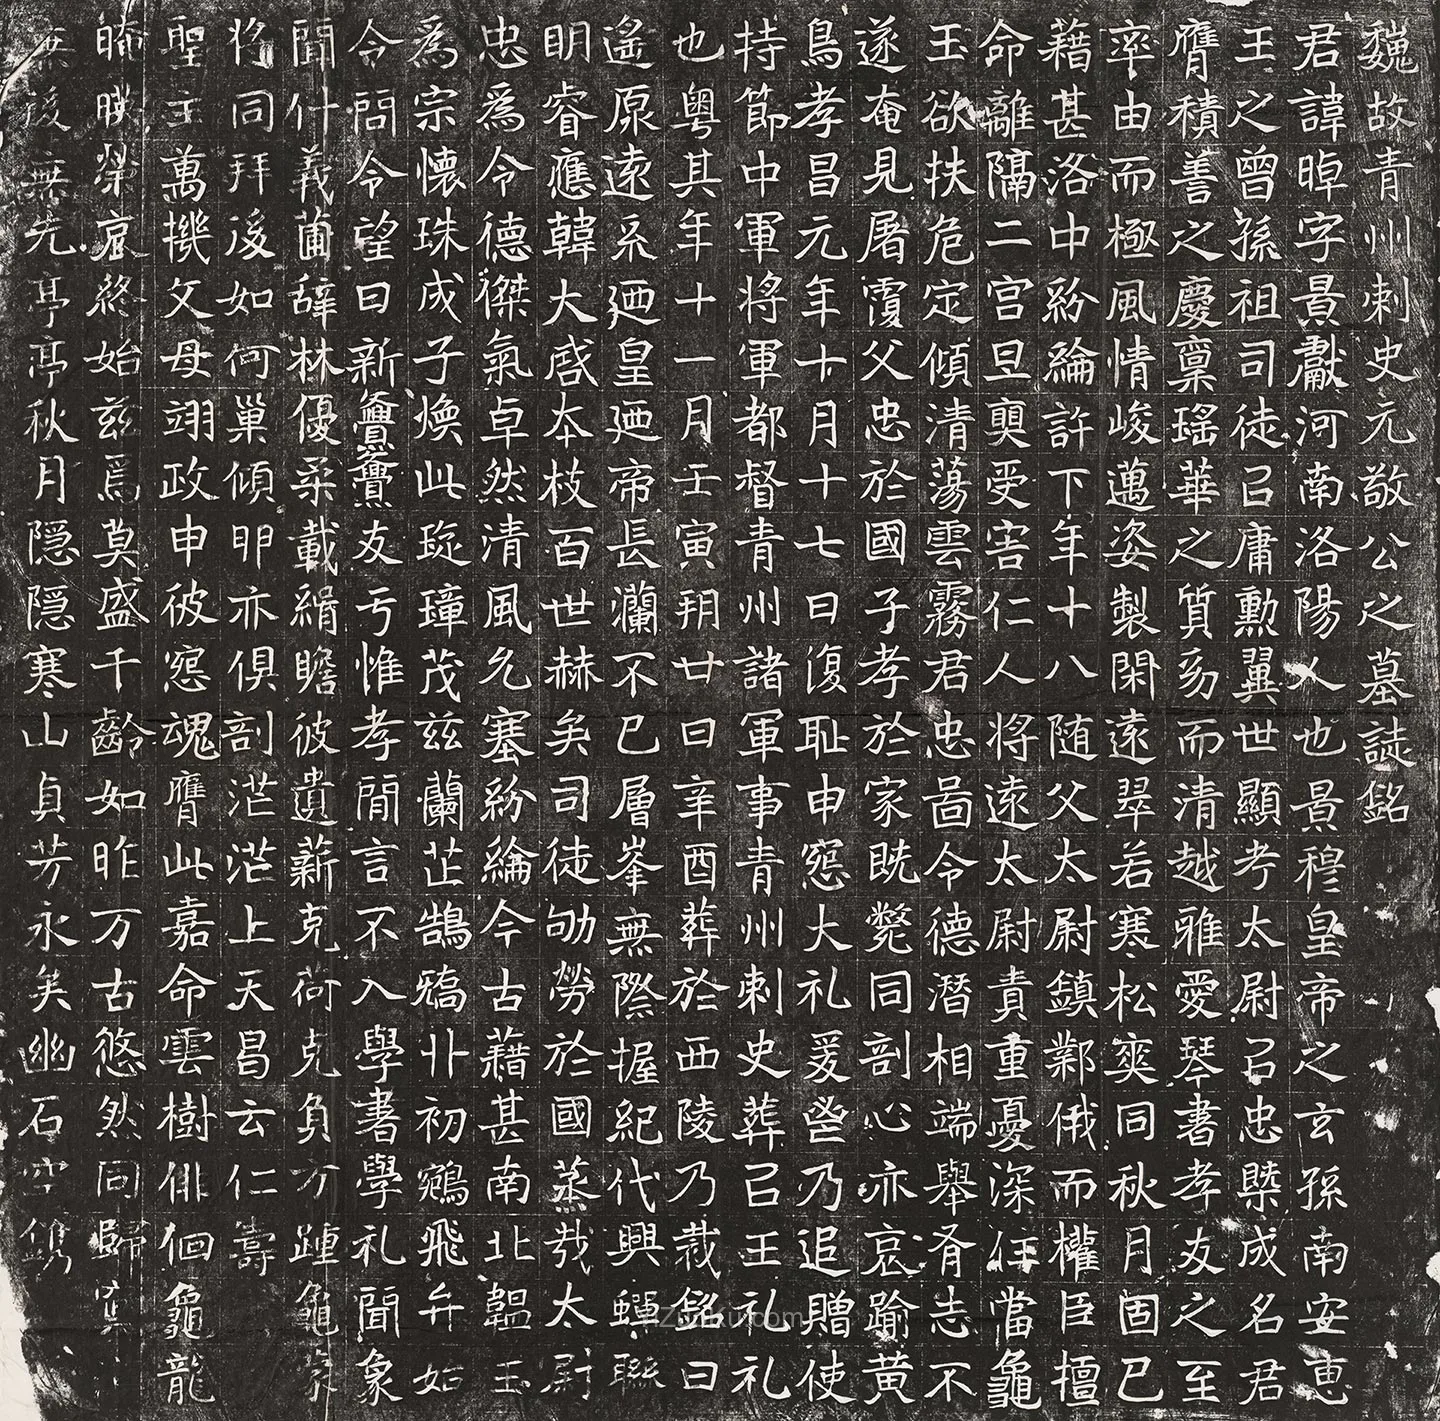 魏故青州刺史元敬公之墓誌銘
君諱暐字景獻河南洛陽人也景穆皇帝之玄孫南安惠
王之曾孫祖司徒以庸勳翼世顯考太尉以忠槩成名君
膺積善之慶稟瑤華之質剏而清越雅愛琴書孝友之至
率由而極風情峻邁姿製閑遠翠若寒松奕同秋月固已
藉甚洛中紛綸許下年十八随父太尉鎮鄴俄而權臣擅
命離隔二宮旦奭受害仁人將遠太尉責重憂深任當龜
玉欲扶危定傾清蕩雲霧君忠啚令德潛相端舉脊志不
遂奄見屠覆父忠於國子孝於家既斃同剖心亦哀踰黃
鳥孝昌元年十月十七日復恥申寃大礼爰凿乃追贈使
持節中軍將軍都督青州諸軍事青州刺史葬以王礼礼
也粵其年十一月壬寅朔廿日辛酉葬於西陵乃裁銘曰
遙原遠系迺皇迺帝長瀾不已層峯無際握紀代興蟬聯
明睿應韓大啓夲枝百世赫矣司徒劬勞於國蒸哉太尉
忠爲令德傑氣卓然清風允塞紛綸今古藉甚南北韞玉
爲宗懷珠成子煥此琁璋茂兹蘭芷鵠鷮卝初鵷飛弁始
令問令望日新亹亹友于惟孝閒言不入學書學礼聞象
聞什義圃辞林優柔載緝瞻彼遺薪克荷克負方踵龜蒙
将同拜後如何巢傾卵亦俱剖茫茫上天昌云仁壽
聖主萬機父母翊政申彼寃魂膺此嘉命雲樹俳佪龜龍
晻暎榮哀終始兹焉莫盛千齡如昨万古悠然同歸冥
無後無先亭亭秋月隱隱寒山貞芳永矣幽石空鐫
kZidiku.com